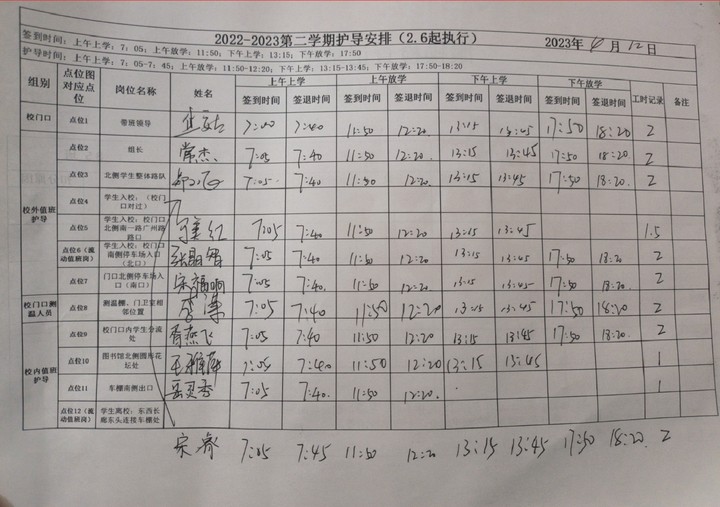 2022-2023第二学期护导安排（2.6起执行）
签到时间：上午上学：7：05；上午放学：11:50；下午上学：13:15；下午放学：17:50 2023年6月12日
护导时间：上午上学：7:05-7：45；上午放学：11:50-12:20；下午上学：13:15-13:45；下午放学：17:50-18:20
组别 点位图对应点位 岗位名称 姓名 上午上学 上午放学 下午上学 下午放学 工时记录 备注
签到时间 签退时间 签到时间 签退时间 签到时间 签退时间 签到时间 签退时间
校门口 点位1 带班领导 7:00 7:40 11:50 12:20 13:15 13:45 17:50 18:20 2
校外值班护导
点位2 组长 常杰 7:05 7:40 11:50 12:20 13:15 13:45 17:50 18:20 2
点位3 北侧学生整体路队 7:05 7:40 11:50 12:20 13:15 13:45 17:50 18:20 2
点位4 学生入校：（校门口对过）
点位5 学生入校：校门口北侧南一路广州路路口 红 7:05 7:40 11:50 12:20 13:15 13:45 1.5
点位6（流动值班岗） 学生入校：校门口南侧停车场入口（北口） 张晶智 7:05 7:40 11:50 12:20 13:15 13:45 17:50 18:20 2
点位7 门口北侧停车场入口（南口） 宋福响 7:05 7:40 11:50 12:20 13:15 13:45 17:50 18:20 2
校门口测温人员 点位8 测温棚、门卫室相邻位置 7:05 7:40 11:50 12:20 13:15 13:45 17:50 18:20 2
校内值班护导
点位9 校门口内学生分流处 燕飞 7:05 7:40 11:50 12:20 13:15 13:45 17:50 18:20 2
点位10 图书馆北侧圆形花坛处 王雅萍 7:05 7:40 11:50 12:20 13:15 13:45 1
点位11 车棚南侧出口 岳灵秀 7:05 7:40 11:50 12:20 1
点位12（流动值班岗） 学生离校：东西长廊东头连接车棚处
宋睿 7:05 7:45 11:50 12:20 13:15 13:45 17:50 18:20 2